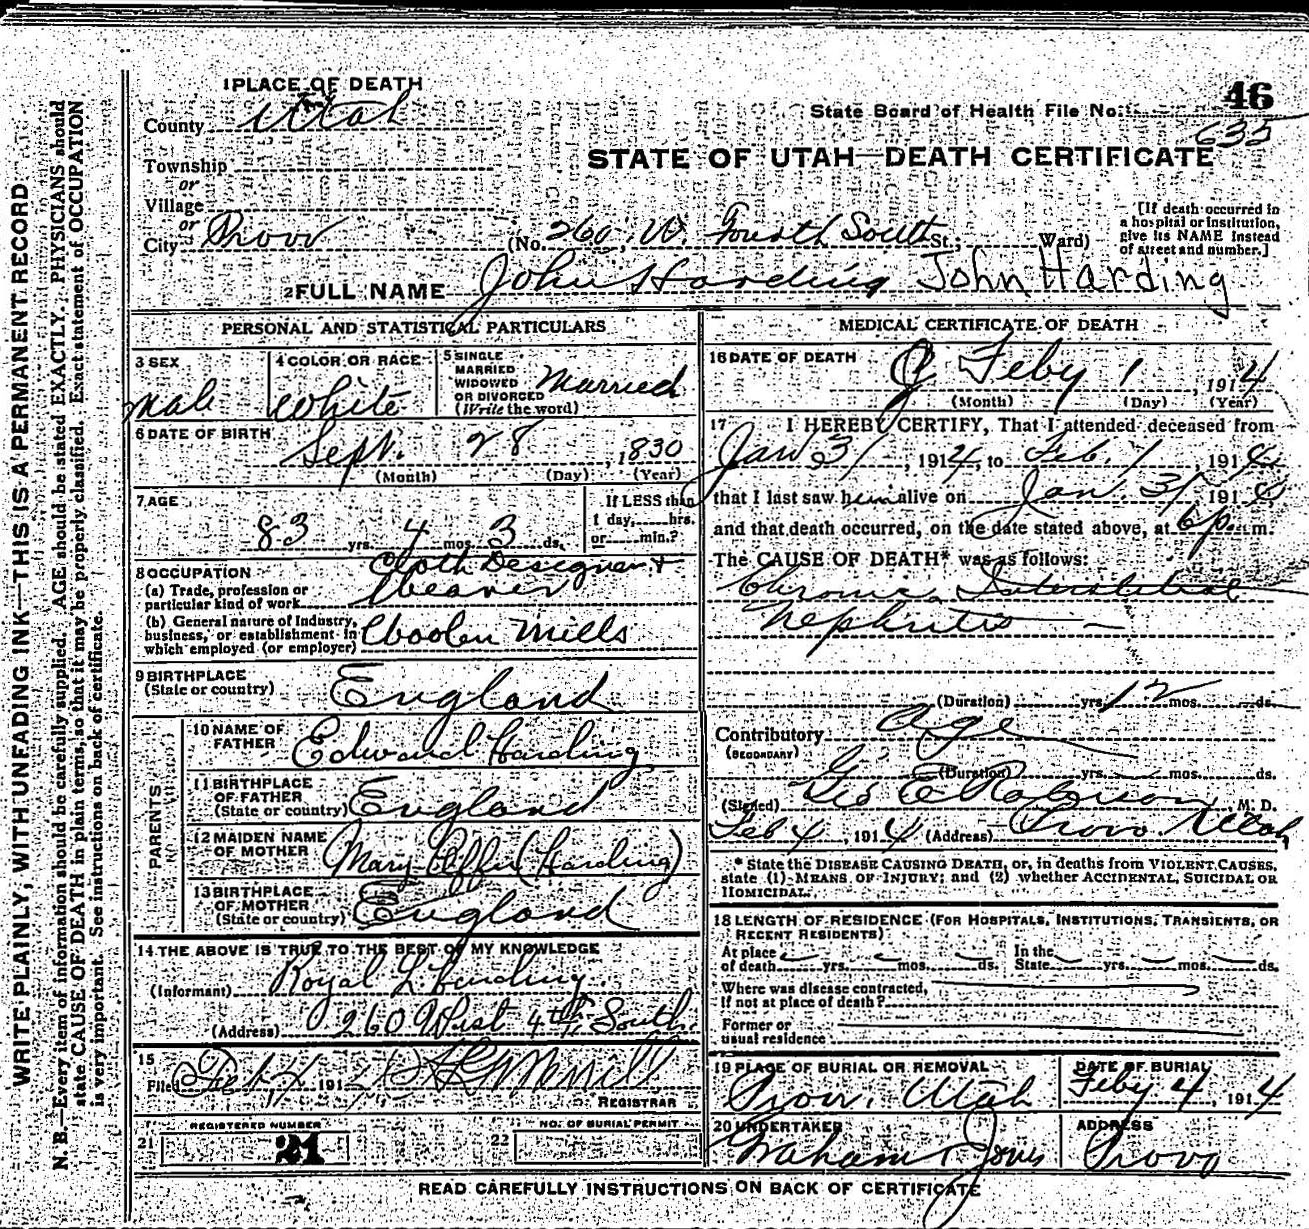 46
State Board of Health File No.
635
1 PLACE OF DEATH
County Utah
Township
or
Village
or
City Provo (No. 260, W. Fourth South St.; Ward)
STATE OF UTAH—DEATH CERTIFICATE
[If death occurred in
a hospital or institution,
give its NAME instead
of street and number.]
2 FULL NAME John Harding John Harding
PERSONAL AND STATISTICAL PARTICULARS
3 SEX
male
4 COLOR OR RACE
White
5 SINGLE
MARRIED
WIDOWED
OR DIVORCED
(Write the word)
Married
6 DATE OF BIRTH
Sept. 28, 1830
(Month) (Day) (Year)
7 AGE
83 yrs. 4 mos. 3 ds.
If LESS than
1 day, hrs.
or min.?
8 OCCUPATION
(a) Trade, profession or
particular kind of work
Cloth Designer +
Weaver
(b) General nature of Industry,
business, or establishment in
which employed (or employer)
Woolen Mills
9 BIRTHPLACE
(State or country)
England
PARENTS
10 NAME OF
FATHER
Edward Harding
11 BIRTHPLACE
OF FATHER
(State or country)
England
12 MAIDEN NAME
OF MOTHER
Mary (Harding)
13 BIRTHPLACE
OF MOTHER
(State or country)
England
14 THE ABOVE IS TRUE TO THE BEST OF MY KNOWLEDGE
(Informant) Royal L Harding
(Address) 260 West 4th South
15
Filed 191 Merrill
REGISTRAR
21
REGISTERED NUMBER
21
22
NO. OF BURIAL PERMIT
MEDICAL CERTIFICATE OF DEATH
16 DATE OF DEATH
Feby 1, 1914
(Month) (Day) (Year)
17 I HEREBY CERTIFY, That I attended deceased from
Jan 31, 1914, to Feb. 1 1914
that I last saw him alive on Jan. 31 1914
and that death occurred, on the date stated above, at 6 p. m.
The CAUSE OF DEATH* was as follows:
Chronic Interstitial
Nephritis
(Duration) yrs. 12 mos. ds.
Contributory Age
(SECONDARY)
(Duration) yrs. mos. ds.
(Signed) Geo E Robison, M. D.
Feb 4, 1914 (Address) Provo Utah
* State the DISEASE CAUSING DEATH, or, in deaths from VIOLENT CAUSES,
state (1) MEANS OF INJURY; and (2) whether ACCIDENTAL, SUICIDAL OR
HOMICIDAL.
18 LENGTH OF RESIDENCE (FOR HOSPITALS, INSTITUTIONS, TRANSIENTS, OR
RECENT RESIDENTS)
At place
of death yrs. mos. ds.
In the
State yrs. mos. ds.
Where was disease contracted,
if not at place of death?
Former or
usual residence
19 PLACE OF BURIAL OR REMOVAL
Provo, Utah
DATE OF BURIAL
Feby 4, 1914
20 UNDERTAKER
Graham Jones
ADDRESS
Provo
READ CAREFULLY INSTRUCTIONS ON BACK OF CERTIFICATE
WRITE PLAINLY, WITH UNFADING INK—THIS IS A PERMANENT RECORD
N. B.—Every item of information should be carefully supplied. AGE should be stated EXACTLY. PHYSICIANS should
state CAUSE OF DEATH in plain terms, so that it may be properly classified. Exact statement of OCCUPATION
is very important. See instructions on back of certificate.